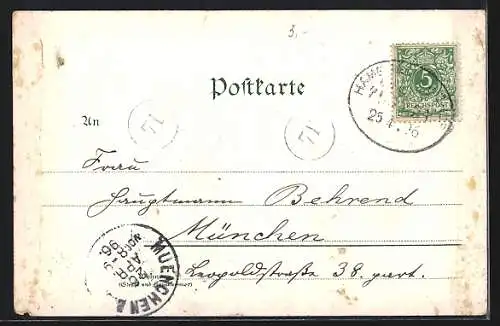 3,-
Postkarte
5
REICHSPOST
25 4 96
An
71
71
Frau
Hauptmann Behrend
München
Leopoldstraße 38. part.
MUENCHEN
APR
96